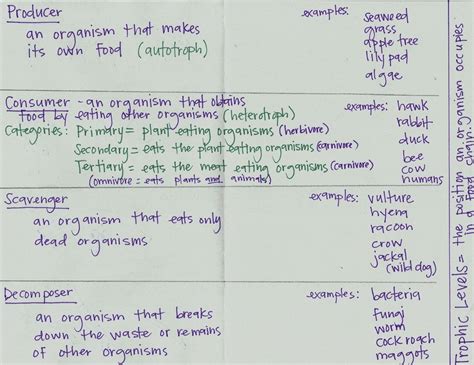 Producer
an organism that makes
its own food (autotroph)
examples: seaweed
grass
apple tree
lily pad
algae
Consumer - an organism that obtains
food by eating other organisms (heterotroph)
Categories: Primary = plant eating organisms (herbivore)
Secondary = eats the plant eating organisms (carnivore)
Tertiary = eats the meat eating organisms (carnivore)
(omnivore = eats plants and animals)
examples: hawk
rabbit
duck
bee
cow
humans
Scavenger
an organism that eats only
dead organisms
examples: vulture
hyena
racoon
crow
jackal
(wild dog)
Decomposer
an organism that breaks
down the waste or remains
of other organisms
examples: bacteria
fungi
worm
cockroach
maggots
Trophic Levels = the position an organism occupies
in a food chain